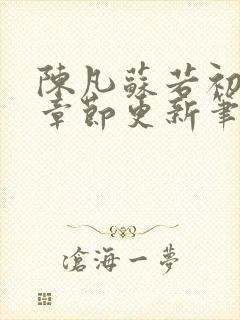 陳凡蘇若初
章節更新筆
滄海一夢